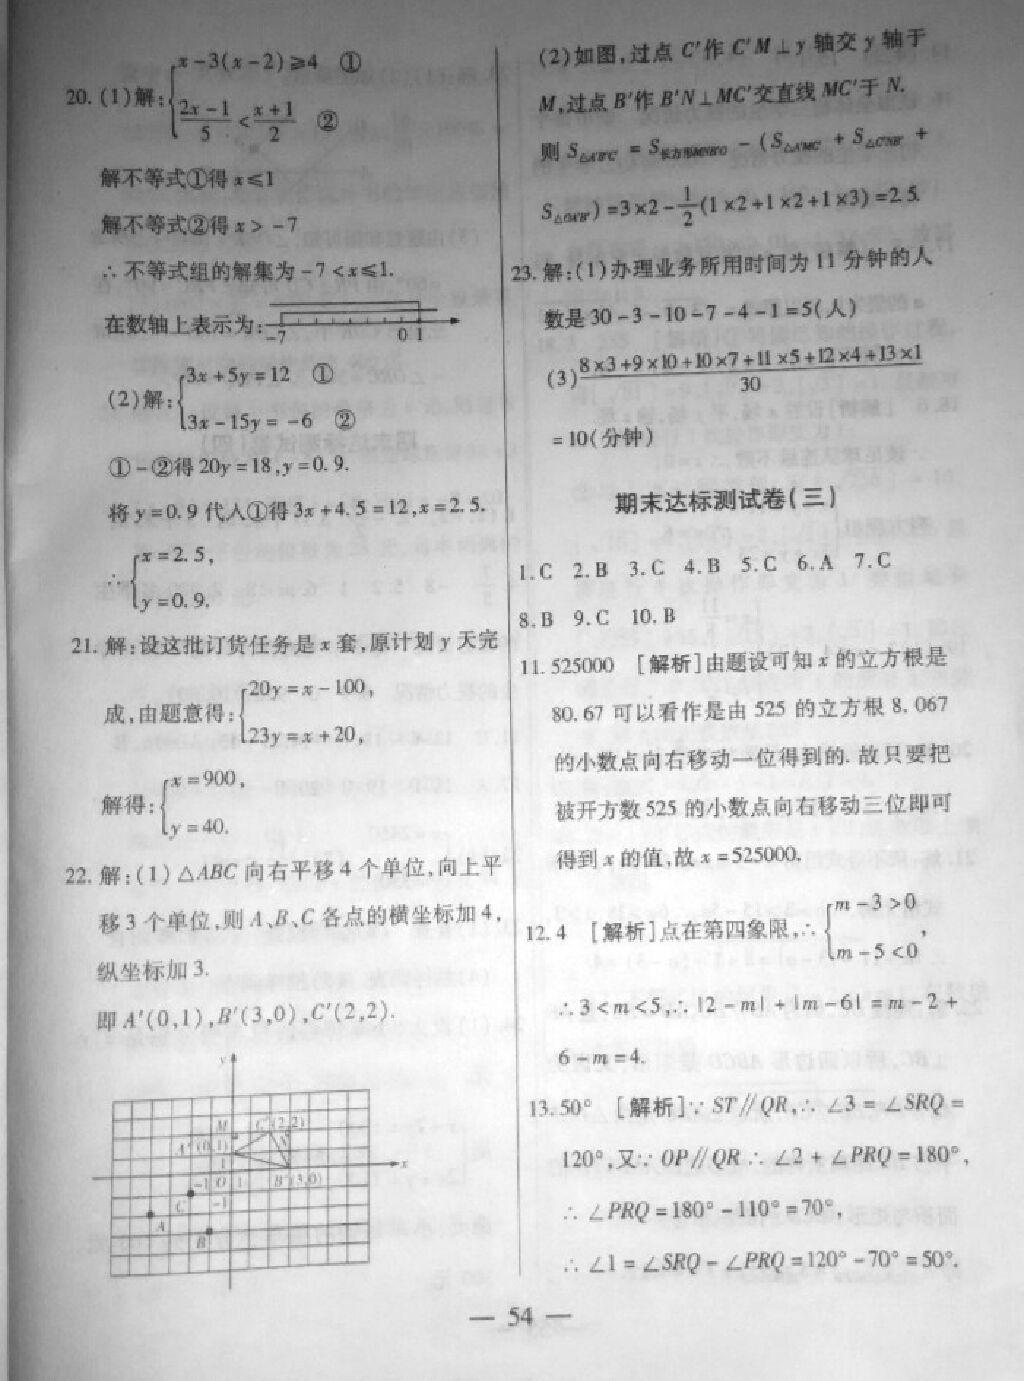 20. (1)解:{x-3(x-2)≥4 ①
(2x-1)/5<(x+1)/2 ②
解不等式①得x≤1
解不等式②得x>-7
∴不等式组的解集为-7<x≤1.
在数轴上表示为:
-7 0 1
(2)解:{3x+5y=12 ①
3x-15y=-6 ②
①-②得20y=18,y=0.9.
将y=0.9代人①得3x+4.5=12,x=2.5.
∴{x=2.5,
y=0.9.
21. 解:设这批订货任务是x套,原计划y天完
成,由题意得:{20y=x-100,
23y=x+20,
解得:{x=900,
y=40.
22. 解:(1)△ABC向右平移4个单位,向上平
移3个单位,则A、B、C各点的横坐标加4,
纵坐标加3.
即A'(0,1),B'(3,0),C'(2,2).
y
M C'(2,2)
A'(0,1) N
1
-1 O 1 B'(3,0) x
C -1
A
B
(2)如图,过点C'作C'M⊥y轴交y轴于
M,过点B'作B'N⊥MC'交直线MC'于N.
则S△A'B'C'=S长方形MNB'O-(S△A'MC'+S△C'NB'+
S△OA'B')=3×2-1/2(1×2+1×2+1×3)=2.5.
23. 解:(1)办理业务所用时间为11分钟的人
数是30-3-10-7-4-1=5(人)
(3)(8×3+9×10+10×7+11×5+12×4+13×1)/30
=10(分钟)
期末达标测试卷(三)
1. C 2. B 3. C 4. B 5. C 6. A 7. C
8. B 9. C 10. B
11. 525000 [解析]由题设可知x的立方根是
80.67可以看作是由525的立方根8.067
的小数点向右移动一位得到的.故只要把
被开方数525的小数点向右移动三位即可
得到x的值,故x=525000.
12. 4 [解析]点在第四象限,∴{m-3>0
m-5<0,
∴3<m<5,∴|2-m|+|m-6|=m-2+
6-m=4.
13. 50° [解析]∵ST∥QR,∴∠3=∠SRQ=
120°,又∵OP∥QR∴∠2+∠PRQ=180°,
∴∠PRQ=180°-110°=70°,
∴∠1=∠SRQ-∠PRQ=120°-70°=50°.
— 54 —